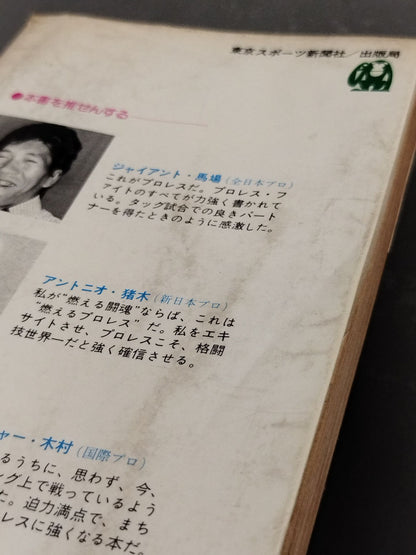 東京スポーツ新聞社/出版局
●本書を推せんする
ジャイアント・馬場(全日本プロ)
これがプロレスだ。プロレス・フ
ァイトのすべてが力強く書かれて
いる。タッグ試合での良きパート
ナーを得たときのように感激した。
アントニオ・猪木(新日本プロ)
私が“燃える闘魂”ならば、これは
“燃えるプロレス”だ。私をエキ
サイトさせ、プロレスこそ、格闘
技世界一だと強く確信させる。
ャー・木村(国際プロ)
るうちに、思わず、今、
ング上で戦っているよう
た。迫力満点で、まち
レスに強くなる本だ。